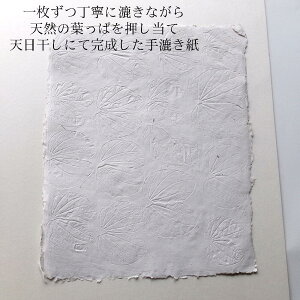 一枚ずつ丁寧に漉きながら
天然の葉っぱを押し当て
天日干しにて完成した手漉き紙